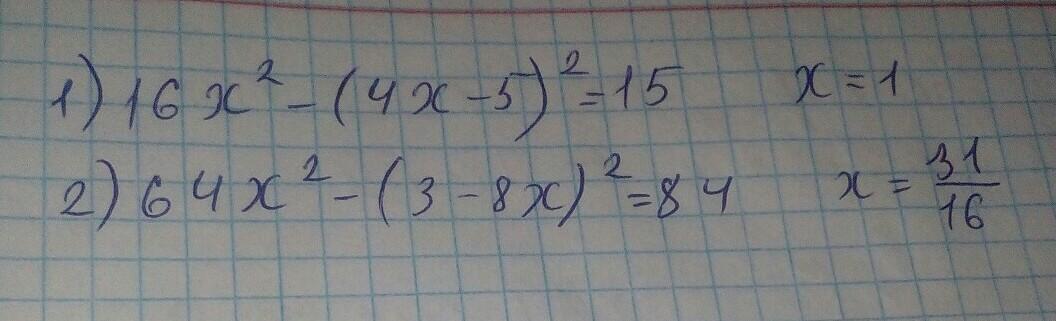 1) 16x² - (4x - 5)² = 15 x = 1
2) 64x² - (3 - 8x)² = 84 x = 31/16